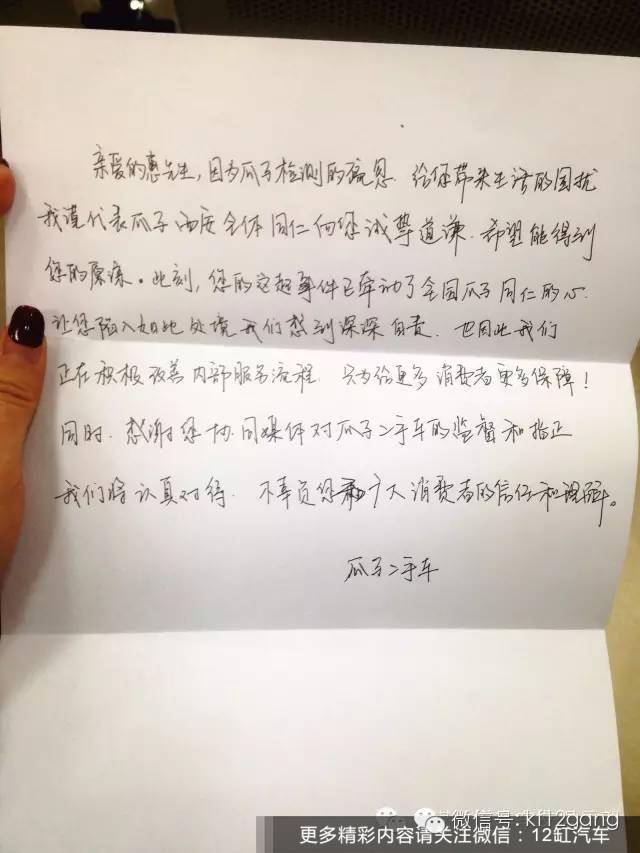 亲爱的惠先生,因为瓜子检测的疏忽.给您带来生活的困扰
我谨代表瓜子西安全体同仁向您诚挚道谦.希望能得到
您的原谅。此刻,您的这起事件已牵动了全国瓜子同仁的心.
让您陷入如此处境我们感到深深自责.也因此我们
正在积极改善内部服务流程.只为给更多消费者更多保障!
同时.感谢您协同媒体对瓜子二手车的监督和指正
我们将认真对待.不辜负您和广大消费者的信任和理解。
瓜子二手车
微信号:kf12gang
更多精彩内容请关注微信:12缸汽车